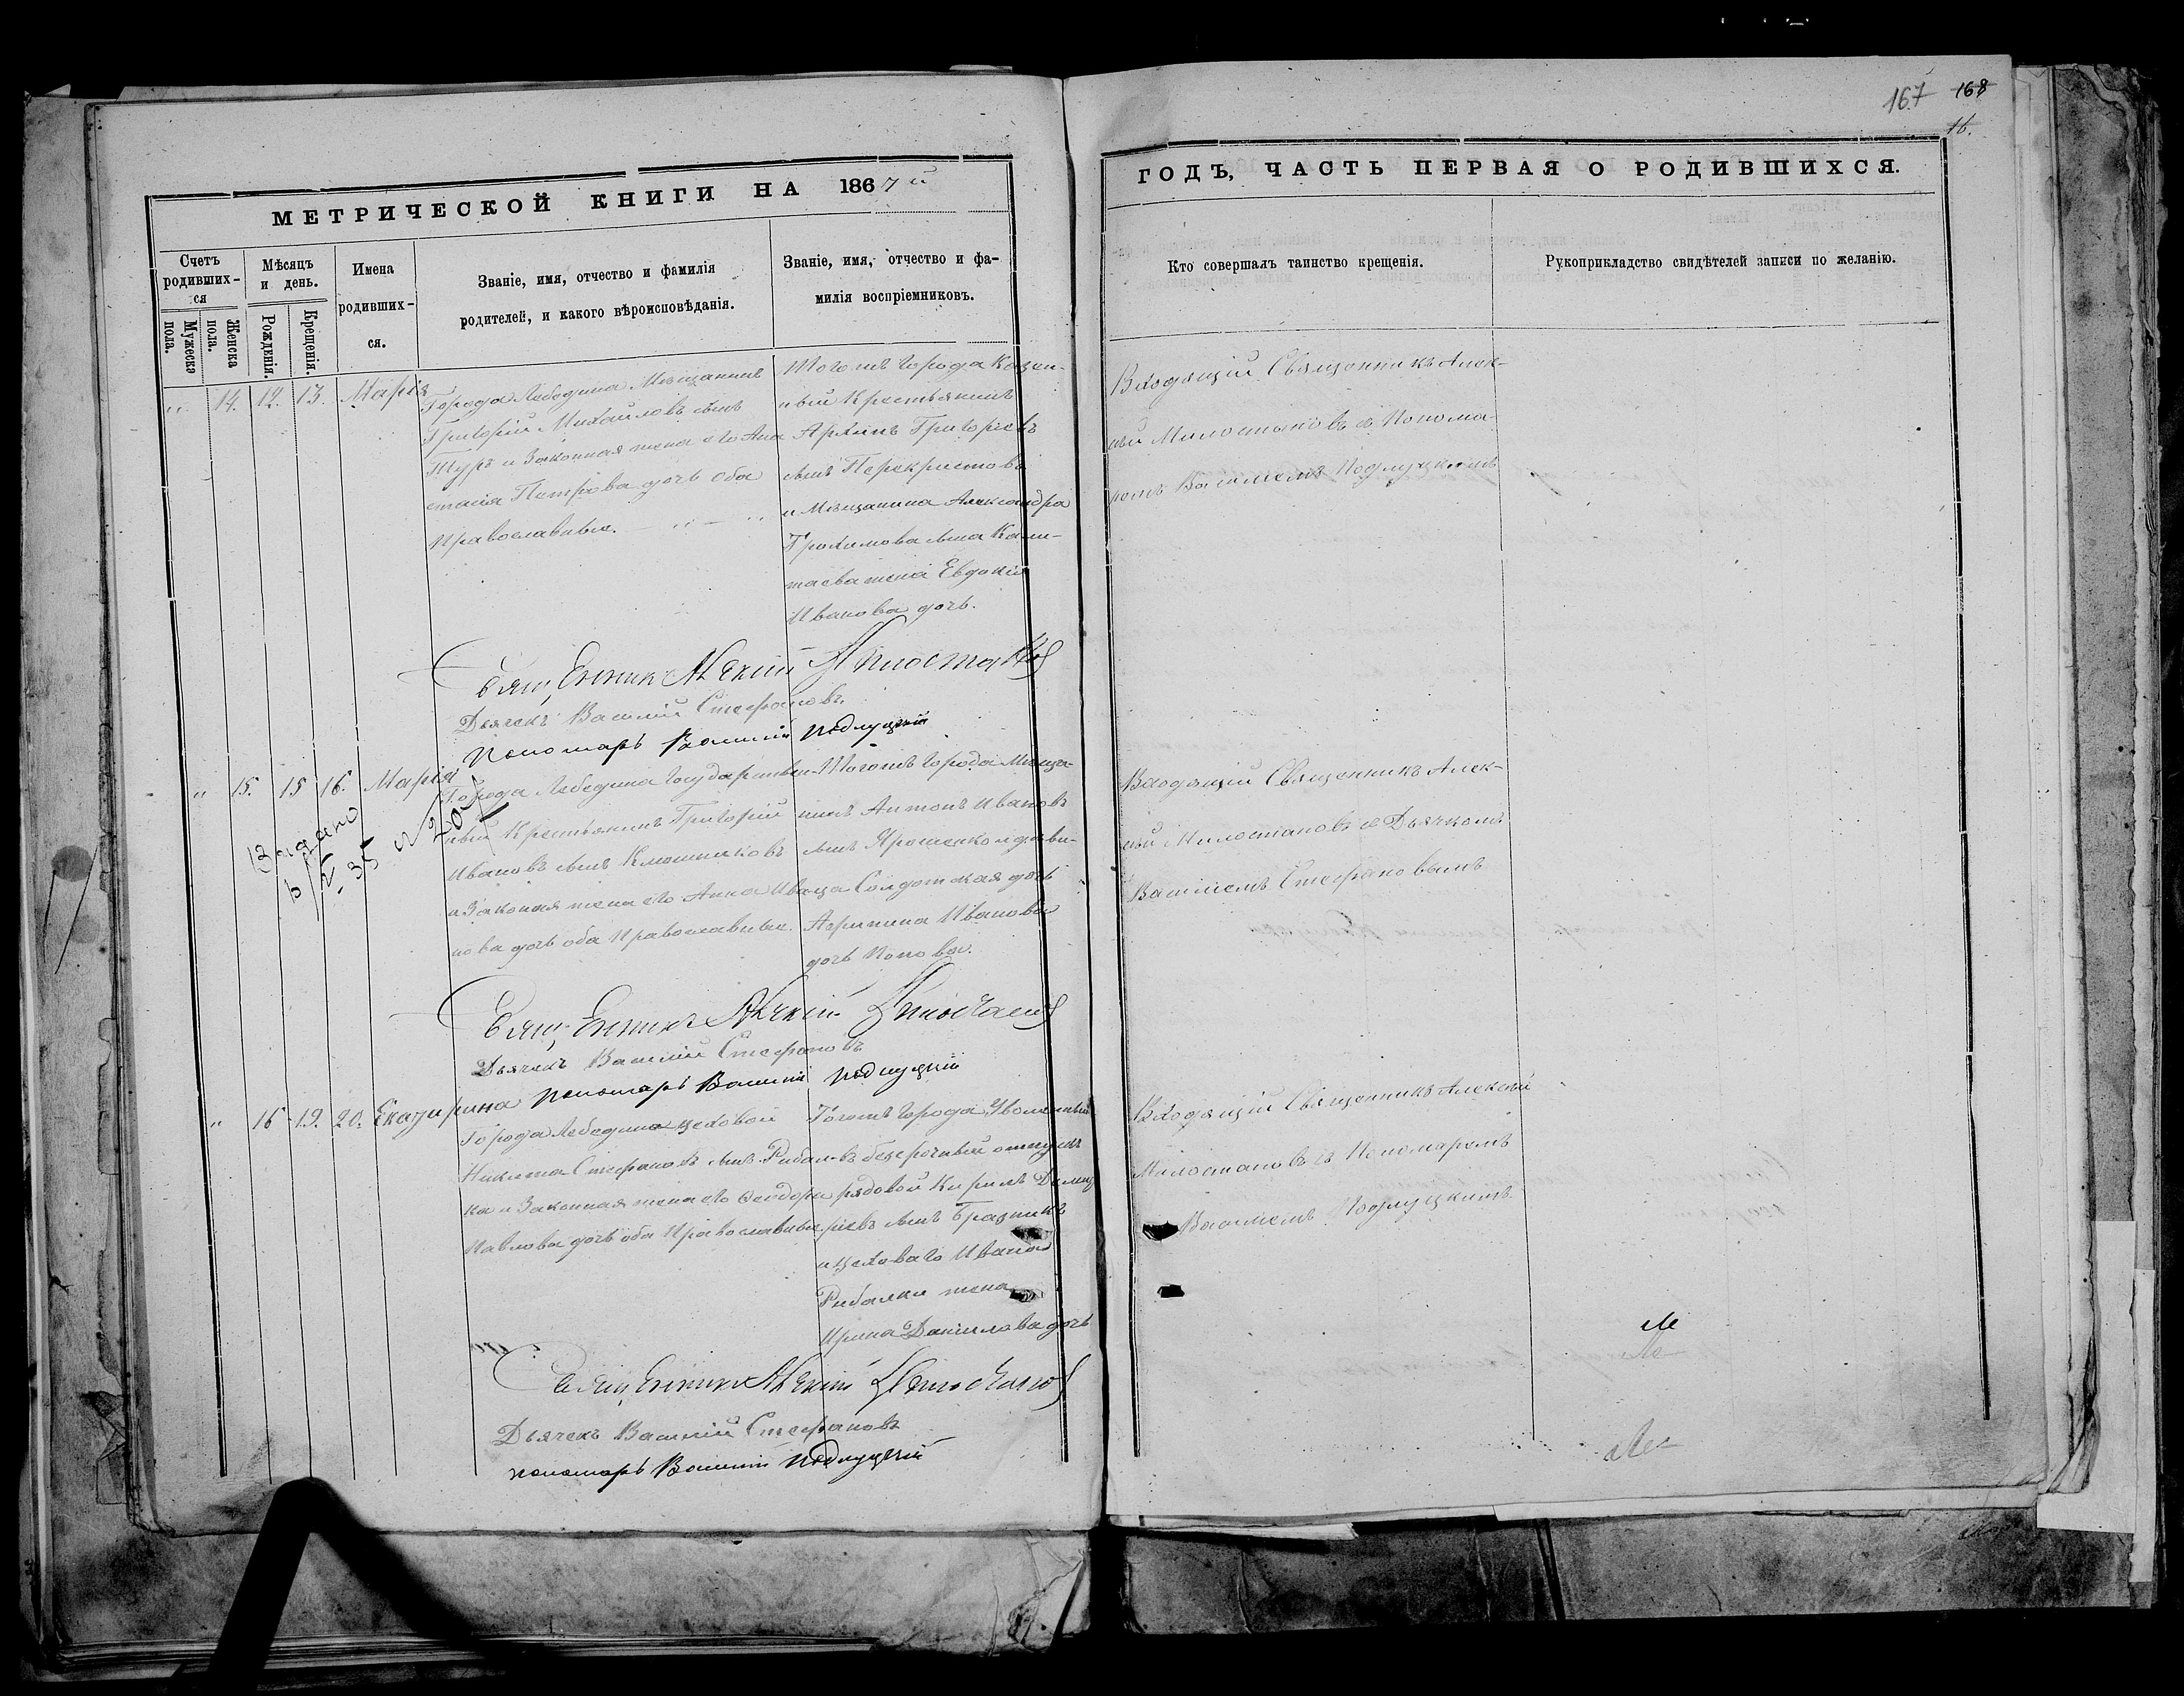 167 168
16.
МЕТРИЧЕСКОЙ КНИГИ НА 1867й
ГОДЪ, ЧАСТЬ ПЕРВАЯ О РОДИВШИХСЯ.
Счетъ родивших-ся
Мужеска пола.
Женска пола.
Мѣсяцъ и день.
Рожденія.
Крещенія.
Имена родивших-ся.
Званіе, имя, отчество и фамилія
родителей, и какого вѣроисповѣданія.
Званіе, имя, отчество и фа-
милія воспріемниковъ.
Кто совершалъ таинство крещенія.
Рукоприкладство свидѣтелей записи по желанію.
" 14. 12. 13. Марія
Города Лебедина Мѣщанинъ
Григорій Михайловъ сынъ
Шуръ и Законная жена его Ана
стасія Петрова дочь оба
Православные.
Тогожъ Города Казен-
ный Крестьянинъ
Архипъ Григоріевъ
сынъ Перекристовъ
и Мѣщанина Александра
Трохимова сына
жена Евдокія
Иванова дочь.
Входящій Священникъ Алек-
сѣй Милостановъ съ Понома-
ремъ Василіемъ Подлуцкимъ
Священникъ Алексій Милостановъ
Дьячекъ Василій Стефановъ
Пономарь Василій Подлуцкій
" 15. 15 16. Марія
Выдано
№ 20
Города Лебедина Государствен-
ный Крестьянинъ Григорій
Ивановъ сынъ Клюшниковъ
и Законная жена его Анна Ива-
нова дочь оба Православные.
Тогожъ Города Мѣща-
нинъ Антонъ Ивановъ
сынъ Ярошенко и дѣви-
ца Солдатская дочь
Агрипина Иванова
дочь Попова.
Входящій Священникъ Алек-
сѣй Милостановъ съ Дьячкомъ
Василіемъ Стефановымъ
Священникъ Алексій Милостановъ
Дьячекъ Василій Стефановъ
Пономарь Василій Подлуцкій
" 16 19. 20. Екатирина
Города Лебедина цеховой
Никита Стефановъ сынъ Рибал-
ка и Законная жена его Феодора
Павлова дочь оба Православные
Тогожъ Города Уволенный
въ безсрочный отпускъ
рядовой Кирилъ Димит
ріевъ сынъ Бразникъ
и цеховаго Ивана
Рибалки жена
Ирина Данилова дочь
Входящій Священникъ Алексій
Милостановъ съ Пономаремъ
Василіемъ Подлуцкимъ.
Священникъ Алексій Милостановъ
Дьячекъ Василій Стефановъ
Пономарь Василій Подлуцкій